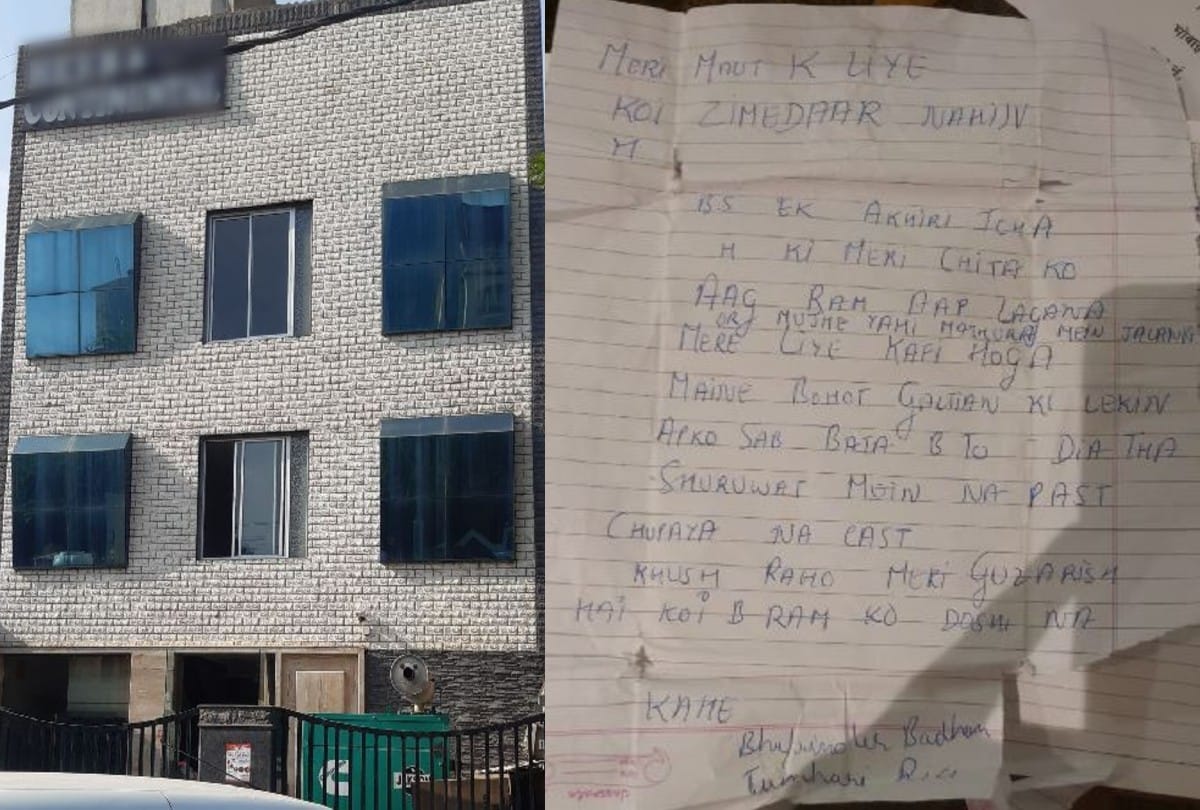 MERI MAUT K LIYE
KOI ZIMEDAAR NAHIN
H
BS EK AKHIRI ICHA
H KI MERI CHITA KO
AAG RAM AAP LAGANA
OR MUJHE YAHI MATHURA MEIN JALANA
MERE LIYE KAFI HOGA
MAINE BOHOT GALTIAN KI LEKIN
APKO SAB BATA B TO DIA THA
SHURUWAT MEIN NA PAST
CHUPAYA NA CAST
KHUSH RAHO MERI GUZARISH
HAI KOI B RAM KO DOSHI NA
KAHE
Tumhari